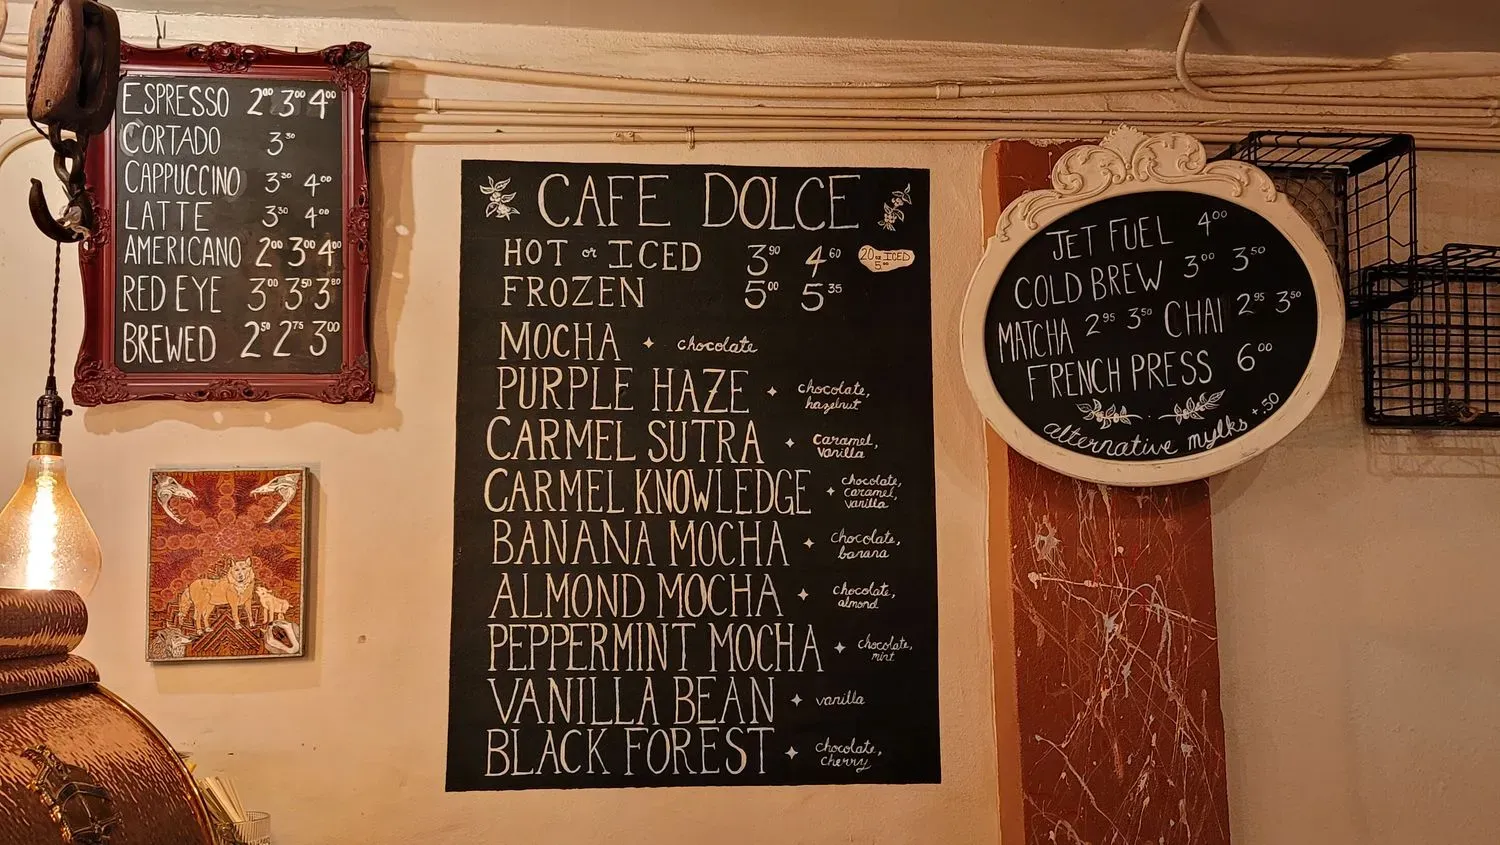 ESPRESSO 2⁰⁰ 3⁰⁰ 4⁰⁰
CORTADO 3⁵⁰
CAPPUCCINO 3⁵⁰ 4⁰⁰
LATTE 3⁵⁰ 4⁰⁰
AMERICANO 2⁰⁰ 3⁰⁰ 4⁰⁰
RED EYE 3⁰⁰ 3⁵⁰ 3⁸⁰
BREWED 2⁵⁰ 2⁷⁵ 3⁰⁰
CAFE DOLCE
HOT or ICED 3⁹⁰ 4⁶⁰ 20oz ICED 5⁰⁰
FROZEN 5⁰⁰ 5³⁵
MOCHA ✦ chocolate
PURPLE HAZE ✦ chocolate, hazelnut
CARMEL SUTRA ✦ caramel, vanilla
CARMEL KNOWLEDGE ✦ chocolate, caramel, vanilla
BANANA MOCHA ✦ chocolate, banana
ALMOND MOCHA ✦ chocolate, almond
PEPPERMINT MOCHA ✦ chocolate, mint
VANILLA BEAN ✦ vanilla
BLACK FOREST ✦ chocolate, cherry
JET FUEL 4⁰⁰
COLD BREW 3⁰⁰ 3⁵⁰
MATCHA 2⁹⁵ 3⁵⁰ CHAI 2⁹⁵ 3⁵⁰
FRENCH PRESS 6⁰⁰
alternative mylks +.50